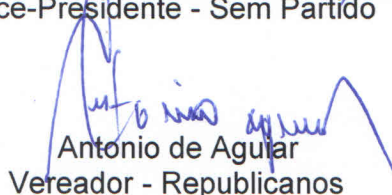 ce-Presidente - Sem Partido
Antonio aguiar
Antonio de Aguiar
Vereador - Republicanos